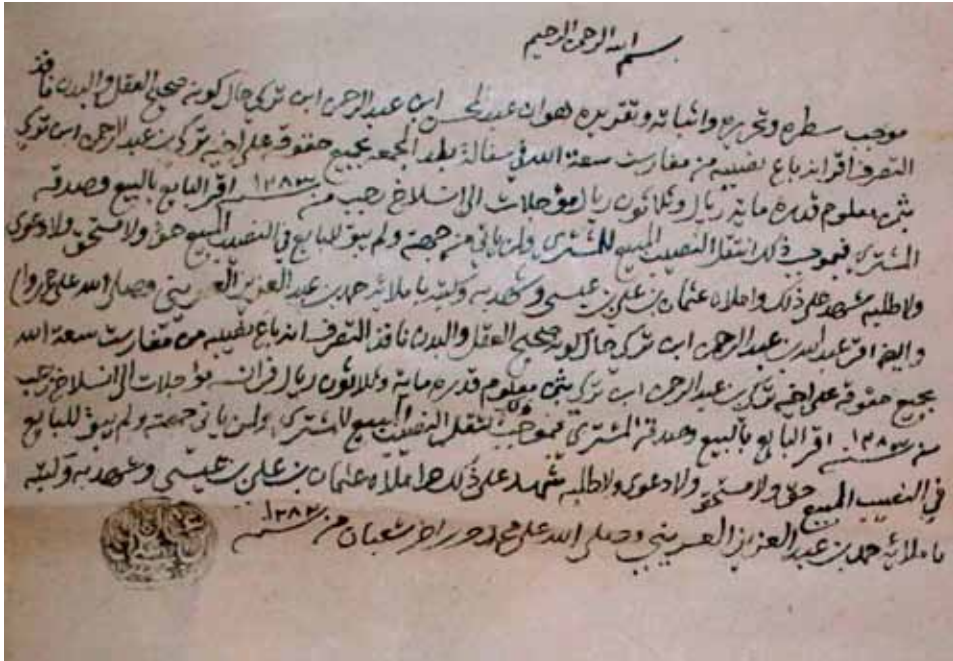 بسم الله الرحمن الرحيم
موجب سطره وتحريره واثباته وتقريره هو ان عبدالمحسن ابن عبدالرحمن ابن تركي حال كونه صحيح العقل والبدن نافذ
التصرف اقر انه باع نصيبه من مغارست سعة الله في سفالة بلد المجمعه بجميع حقوقه على اخيه تركي بن عبدالرحمن ابن تركي
بثمن معلوم قدره مايه ريال وثلاثون ريال مؤجلات الى انسلاخ رجب من سنة ١٢٨٣ اقر البايع بالبيع وصدقه
المشتري فبموجب ذلك انتقل النصيب المبيع للمشتري ولمن ياتي من جهته ولم يبق للبايع في النصيب المبيع حق ولا مستحق ولا دعوى
ولا طلبه شهد على ذلك واملاه عثمان بن علي بن عيسى وشهد به وكتبه باملائه حمد بن عبدالعزيز العريني وصلى الله على محمد واله
وايضا اقر عبدالله بن عبدالرحمن ابن تركي حال كونه صحيح العقل والبدن نافذ التصرف انه باع نصيبه من مغارست سعة الله
بجميع حقوقه على اخيه تركي بن عبدالرحمن ابن تركي بثمن معلوم قدره مايه وثلاثون ريال فرانسه مؤجلات الى انسلاخ رجب
من سنة ١٢٨٣ اقر البايع بالبيع وصدقه المشتري فبموجب ذلك انتقل النصيب المبيع للمشتري ولمن ياتي جهته ولم يبق للبايع
في النصيب المبيع حق ولا مستحق ولا دعوى ولا طلبه شهد على ذلك واملاه عثمان بن علي بن عيسى وشهد به وكتبه
باملائه حمد بن عبدالعزيز العريني وصلى الله على محمد حرر اخر شعبان من سنة ١٢٨٢